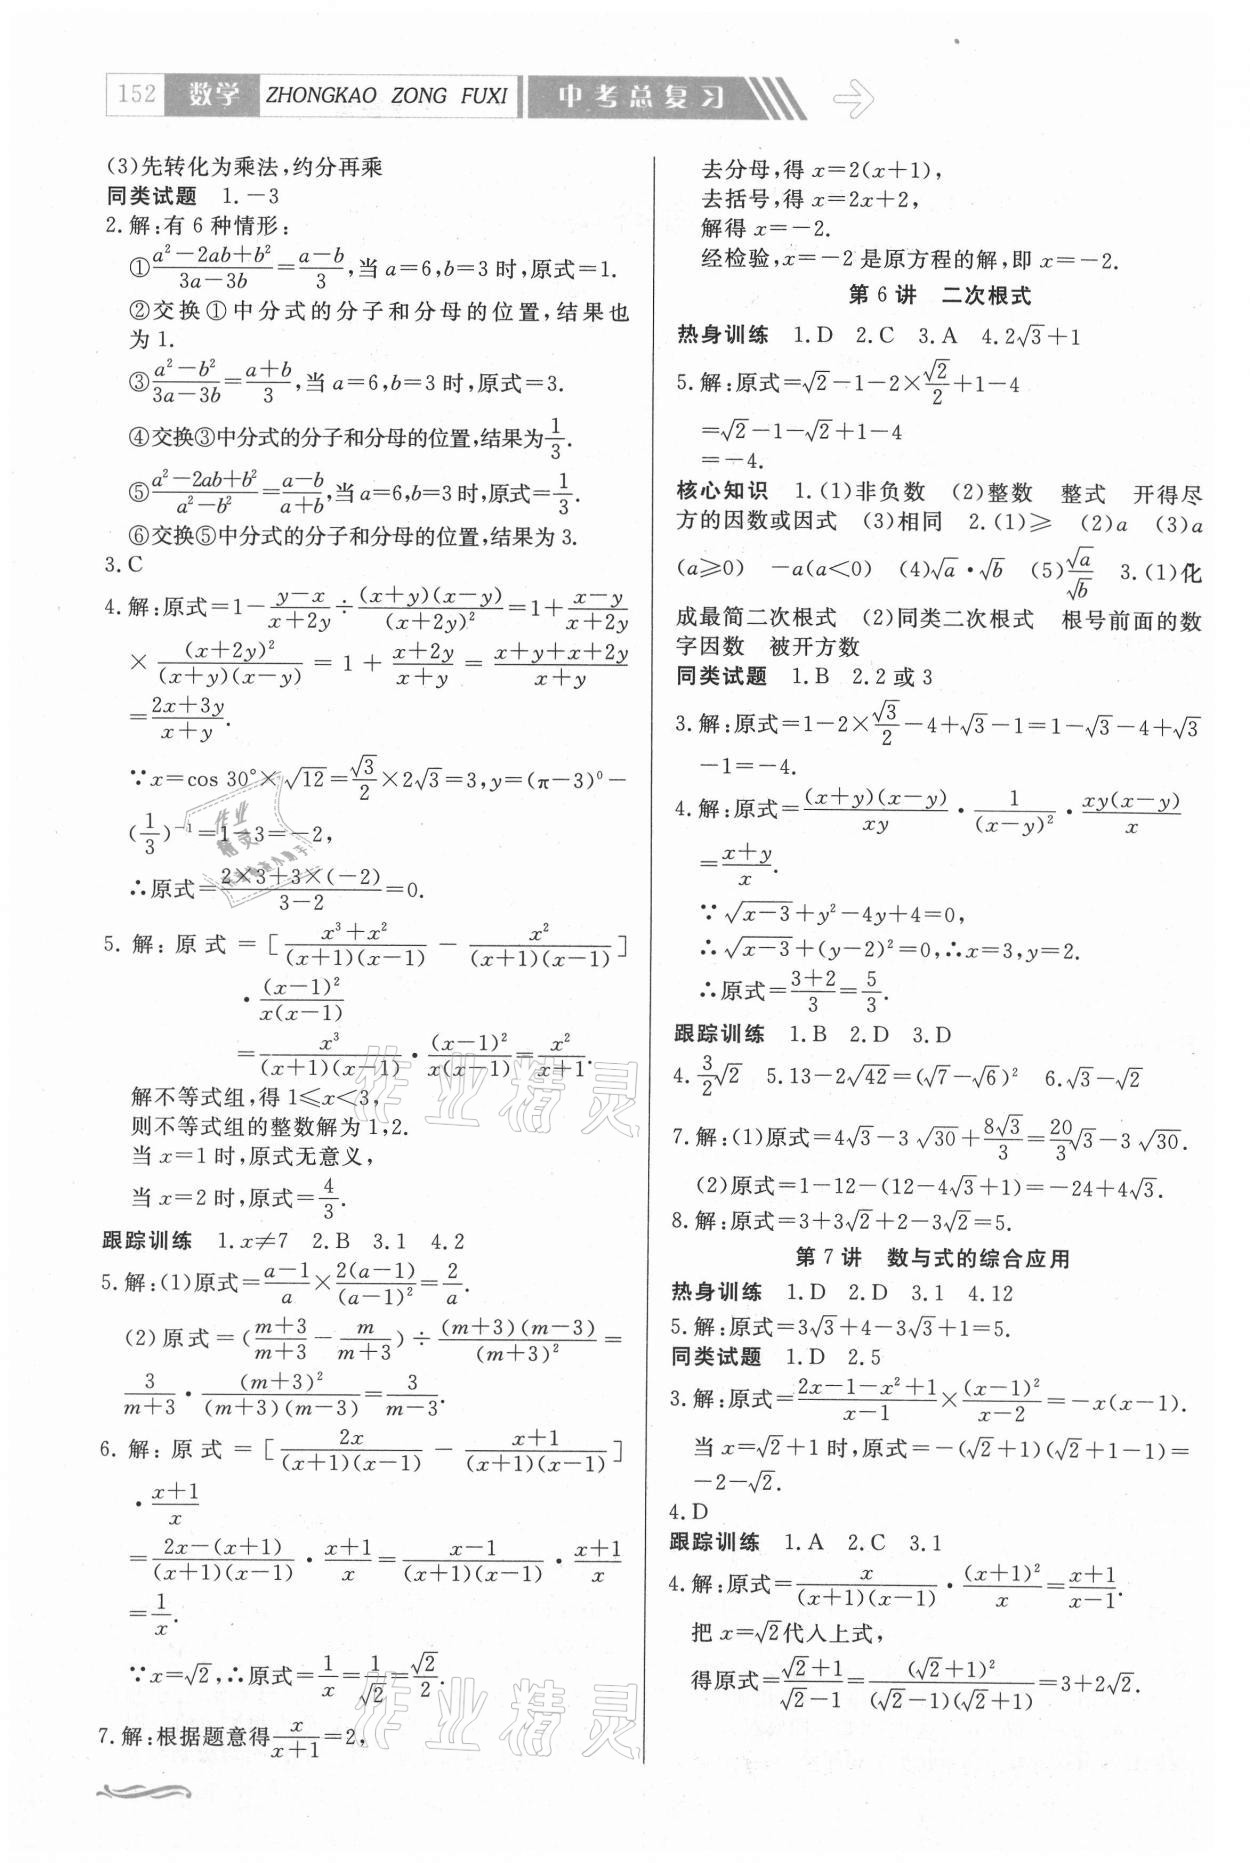 152 数学 ZHONGKAO ZONG FUXI 中考总复习
(3)先转化为乘法,约分再乘
同类试题 1.-3
2.解:有 6 种情形:
①\frac{a²-2ab+b²}{3a-3b}=\frac{a-b}{3},当 a=6,b=3 时,原式=1.
②交换①中分式的分子和分母的位置,结果也
为 1.
③\frac{a²-b²}{3a-3b}=\frac{a+b}{3},当 a=6,b=3 时,原式=3.
④交换③中分式的分子和分母的位置,结果为\frac{1}{3}.
⑤\frac{a²-2ab+b²}{a²-b²}=\frac{a-b}{a+b},当 a=6,b=3 时,原式=\frac{1}{3}.
⑥交换⑤中分式的分子和分母的位置,结果为 3.
3.C
4.解:原式=1-\frac{y-x}{x+2y}÷\frac{(x+y)(x-y)}{(x+2y)²}=1+\frac{x-y}{x+2y}
×\frac{(x+2y)²}{(x+y)(x-y)}=1+\frac{x+2y}{x+y}=\frac{x+y+x+2y}{x+y}
=\frac{2x+3y}{x+y}.
∵x=cos 30°×√12=\frac{√3}{2}×2√3=3,y=(π-3)⁰-
(\frac{1}{3})⁻¹=1-3=-2,
∴原式=\frac{2×3+3×(-2)}{3-2}=0.
5.解:原式=[\frac{x³+x²}{(x+1)(x-1)}-\frac{x²}{(x+1)(x-1)}]
·\frac{(x-1)²}{x(x-1)}
=\frac{x³}{(x+1)(x-1)}·\frac{(x-1)²}{x(x-1)}=\frac{x²}{x+1}.
解不等式组,得 1≤x<3,
则不等式组的整数解为 1,2.
当 x=1 时,原式无意义,
当 x=2 时,原式=\frac{4}{3}.
跟踪训练 1.x≠7 2.B 3.1 4.2
5.解:(1)原式=\frac{a-1}{a}×\frac{2(a-1)}{(a-1)²}=\frac{2}{a}.
(2)原式=(\frac{m+3}{m+3}-\frac{m}{m+3})÷\frac{(m+3)(m-3)}{(m+3)²}=
\frac{3}{m+3}·\frac{(m+3)²}{(m+3)(m-3)}=\frac{3}{m-3}.
6.解:原式=[\frac{2x}{(x+1)(x-1)}-\frac{x+1}{(x+1)(x-1)}]
·\frac{x+1}{x}
=\frac{2x-(x+1)}{(x+1)(x-1)}·\frac{x+1}{x}=\frac{x-1}{(x+1)(x-1)}·\frac{x+1}{x}
=\frac{1}{x}.
∵x=√2,∴原式=\frac{1}{x}=\frac{1}{√2}=\frac{√2}{2}.
7.解:根据题意得\frac{x}{x+1}=2,
去分母,得 x=2(x+1),
去括号,得 x=2x+2,
解得 x=-2.
经检验,x=-2 是原方程的解,即 x=-2.
第 6 讲 二次根式
热身训练 1.D 2.C 3.A 4.2√3+1
5.解:原式=√2-1-2×\frac{√2}{2}+1-4
=√2-1-√2+1-4
=-4.
核心知识 1.(1)非负数 (2)整数 整式 开得尽
方的因数或因式 (3)相同 2.(1)≥ (2)a (3)a
(a≥0) -a(a<0) (4)√a·√b (5)\frac{√a}{√b} 3.(1)化
成最简二次根式 (2)同类二次根式 根号前面的数
字因数 被开方数
同类试题 1.B 2.2 或 3
3.解:原式=1-2×\frac{√3}{2}-4+√3-1=1-√3-4+√3
-1=-4.
4.解:原式=\frac{(x+y)(x-y)}{xy}·\frac{1}{(x-y)²}·\frac{xy(x-y)}{x}
=\frac{x+y}{x}.
∵√(x-3)+y²-4y+4=0,
∴√(x-3)+(y-2)²=0,∴x=3,y=2.
∴原式=\frac{3+2}{3}=\frac{5}{3}.
跟踪训练 1.B 2.D 3.D
4.\frac{3}{2}√2 5.13-2√42=(√7-√6)² 6.√3-√2
7.解:(1)原式=4√3-3√30+\frac{8√3}{3}=\frac{20}{3}√3-3√30.
(2)原式=1-12-(12-4√3+1)=-24+4√3.
8.解:原式=3+3√2+2-3√2=5.
第 7 讲 数与式的综合应用
热身训练 1.D 2.D 3.1 4.12
5.解:原式=3√3+4-3√3+1=5.
同类试题 1.D 2.5
3.解:原式=\frac{2x-1-x²+1}{x-1}×\frac{(x-1)²}{x-2}=-x(x-1).
当 x=√2+1 时,原式=-(√2+1)(√2+1-1)=
-2-√2.
4.D
跟踪训练 1.A 2.C 3.1
4.解:原式=\frac{x}{(x+1)(x-1)}·\frac{(x+1)²}{x}=\frac{x+1}{x-1}.
把 x=√2代入上式,
得原式=\frac{√2+1}{√2-1}=\frac{(√2+1)²}{(√2-1)(√2+1)}=3+2√2.
作业精灵
作业精灵
作业
精灵